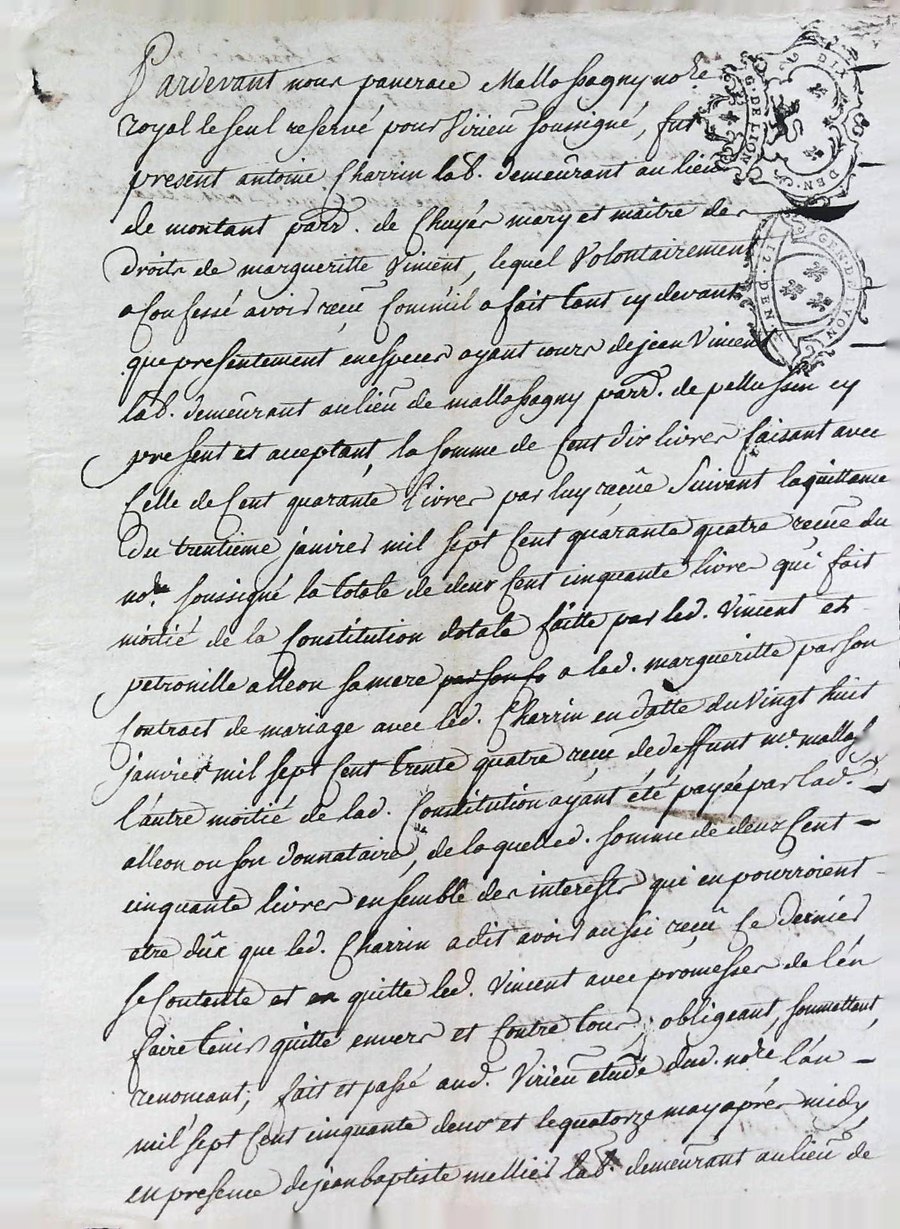 Pardevant nous pancrace Mallossagny no.re
royal le seul reservé pour Virieu soussigné, fut
present antoine Charrin lab. demeurant au lieu
de montant parr. de Chuyés mary et maitre des
droits de margueritte Vincent, lequel Volontairement
a confessé avoir reçeu Comm'il a fait tant cy devant
que presentement en especes ayant cours de jean Vincent
lab. demeurant au lieu de mallossagny parr. de pellussin cy
present et acceptant, la somme de Cent dix livres faisant avec
Celle de Cent quarante livres par luy reçeüe Suivant la quittance
du trentieme janvier mil sept Cent quarante quatre reçeue du
no.re soussigné la totale de deux Cent cinquante livres qui fait
moitié de la Constitution dotale faitte par led. Vincent et
petronille alleon sa mere a lad. margueritte par son
Contract de mariage avec led. Charrin en datte du Vingt huit
janvier mil sept Cent trente quatre reçeu de deffunt me. mallass.
l'autre moitié de lad. Constitution ayant été payée par lad.
alleon ou son donnataire, de laquelled. somme de deux Cent
cinquante livres ensemble des interests qui en pourroient
etre düx que led. Charrin a dit avoir aussi reçeu Ce dernier
se Contente et en quitte led. Vincent avec promesses de l'en
faire tenir quitte envers et Contre tous, obligeant, soumettant,
renoncant, fait et passé aud. Virieu etude dud. no.re l'an
mil sept Cent cinquante deux et le quatorze may aprés midy
en presence de jean baptiste mellier lab. demeurant au lieu de
G. DE LION
DIX DEN.
GEN. DE LYON
12. DEN.